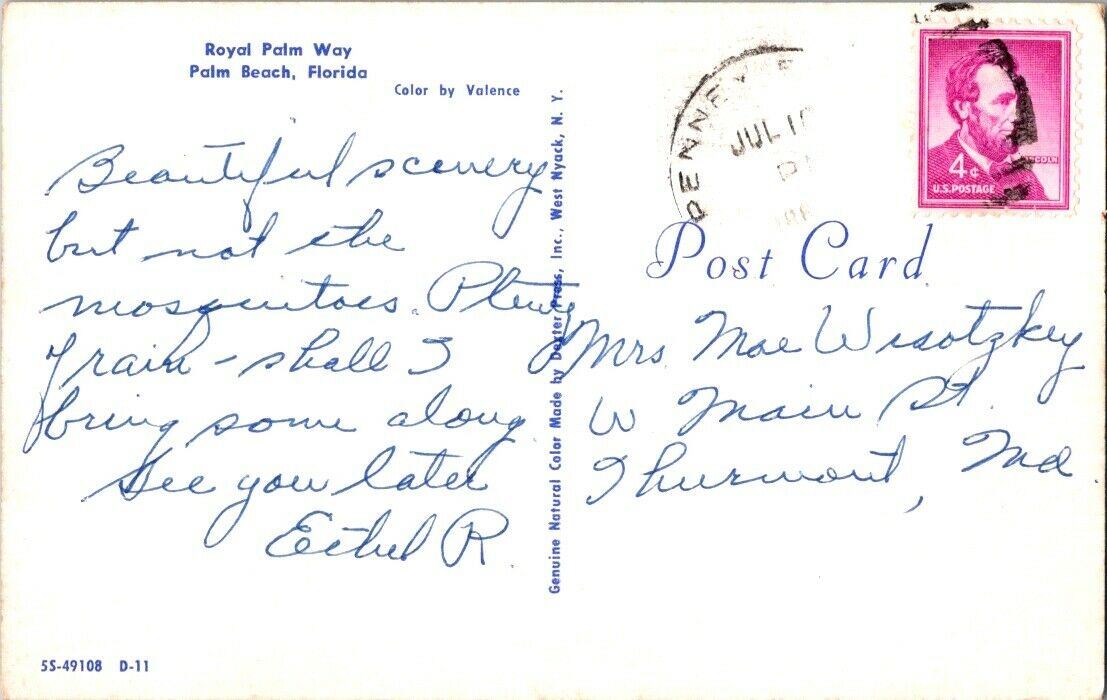 Royal Palm Way
Palm Beach, Florida
Color by Valence
Beautiful scenery
but not the
mosquitoes. Plenty
of rain - shall I
bring some along
See you later
Ethel R.
Genuine Natural Color Made by Dexter Press, Inc., West Nyack, N. Y.
PENNEY
JUL 1
4¢
LINCOLN
U.S. POSTAGE
Post Card
Mrs Mae Wisotzkey
W Main St.
Thurmont, Md
5S-49108 D-11